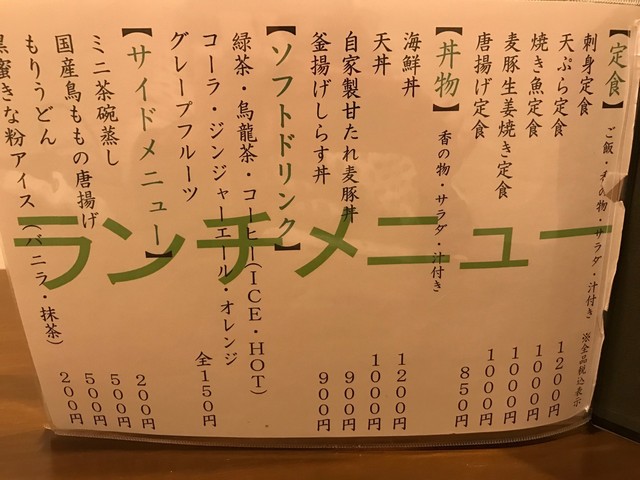 【定食】 ご飯・香の物・サラダ・汁付き ※全品税込表示
刺身定食 1200円
天ぷら定食 1000円
焼き魚定食 1000円
麦豚生姜焼き定食 1000円
唐揚げ定食 850円
【丼物】 香の物・サラダ・汁付き
海鮮丼 1200円
天丼 1000円
自家製甘たれ麦豚丼 900円
釜揚げしらす丼 900円
【ソフトドリンク】
緑茶・烏龍茶・コーヒー(ICE・HOT)
コーラ・ジンジャーエール・オレンジ
グレープフルーツ 全150円
【サイドメニュー】
ミニ茶碗蒸し 200円
国産鳥ももの唐揚げ 500円
もりうどん 500円
黒蜜きな粉アイス(バニラ・抹茶) 200円
ランチメニュー